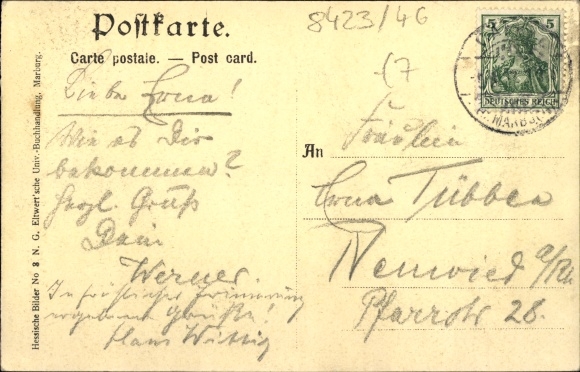 Postkarte.
Carte postale. — Post card.
8423/46
5 5
DEUTSCHES REICH
MARBURG
Hessische Bilder No 8 N. G. Elwert'sche Univ.-Buchhandlung, Marburg.
Liebe Erna!
Wie es Dir
bekommen?
Herzl. Gruß
Dein
Werner.
In fröhlicher Erinnerung
ergebene Grüße!
Hans Wittig
An
Fräulein
Erna Tübben
Neuwied a/Rh
Pfarrstr 28.